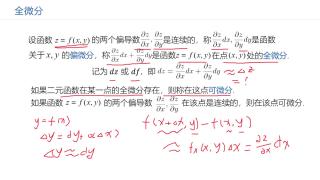 全微分
设函数 z = f(x, y) 的两个偏导数 ∂z/∂x, ∂z/∂y 是连续的，称 ∂z/∂x dx, ∂z/∂y dy 是函数
关于 x, y 的偏微分，称 ∂z/∂x dx + ∂z/∂y dy 是函数 z = f(x, y) 在点(x, y)处的全微分.
记为 dz 或 df, 即 dz = ∂z/∂x dx + ∂z/∂y dy ≈ Δz
= !
如果二元函数在某一点的全微分存在，则称在这点可微分.
如果函数 z = f(x, y) 的两个偏导数 ∂z/∂x, ∂z/∂y 在该点是连续的，则在该点可微分.
y = f(x)
f(x+Δx, y) − f(x, y)
Δy = dy + o(Δx)
≈ fx(x, y)Δx = ∂z/∂x dx
Δy ≈ dy